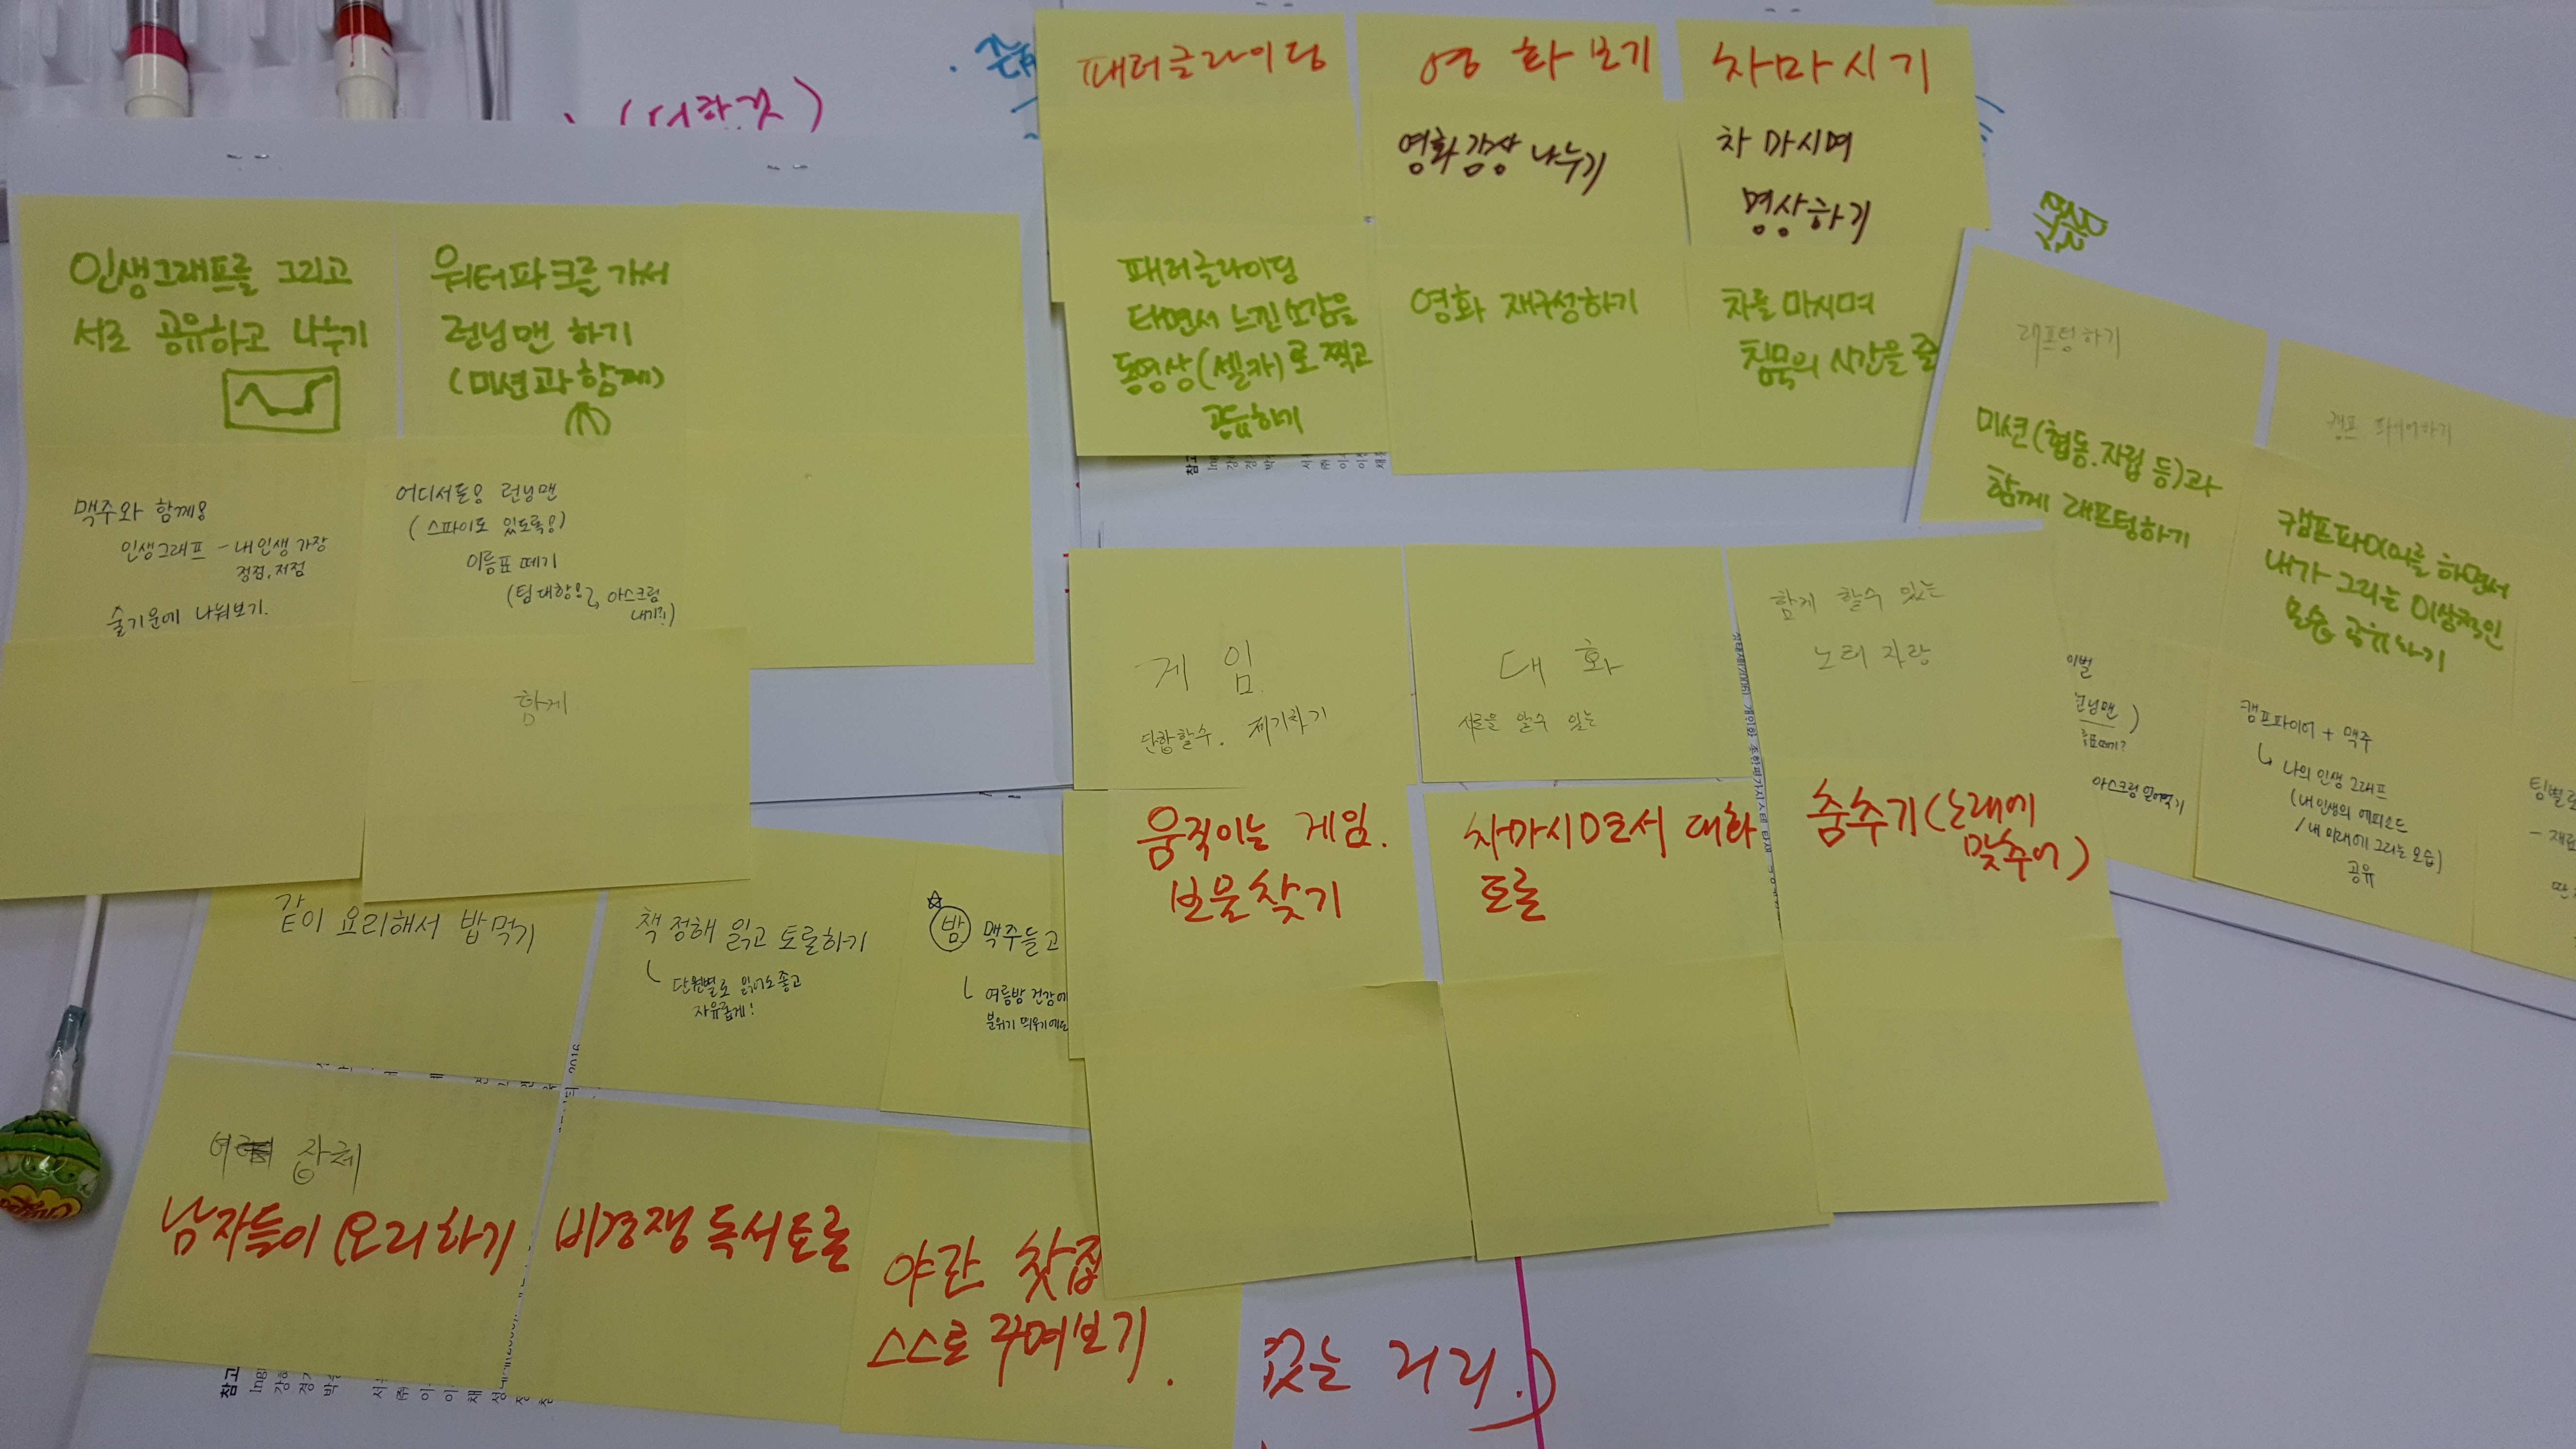 패러글라이딩
패러글라이딩
타면서 느낀 소감을
동영상(셀카)로 찍고
공유하기
영화보기
영화감상 나누기
영화 재구성하기
차마시기
차 마시며
명상하기
차를 마시며
침묵의 시간을
인생그래프를 그리고
서로 공유하고 나누기
워터파크를 가서
런닝맨 하기
(미션과 함께)
맥주와 함께!
인생그래프 - 내 인생 가장
정점, 저점
술기운에 나눠보기.
어디서든! 런닝맨
(스파이도 있도록!)
이름표 떼기
(팀 대항!?, 아스크림
내기?!)
함께
래프팅하기
미션(협동.자립 등)과
함께 래프팅하기
이벌
런닝맨)
아스크림
캠프 파이어하기
캠프파이어를 하면서
내가 그리는 이상적인
모습 공유하기
캠프파이어 + 맥주
나의 인생 그래프
(내 인생의 에피소드
/내 미래에 그리는 모습)
공유
팀별로
게임
단합할수. 제기차기
움직이는 게임.
보물찾기
대화
서로을 알수 있는
차마시면서 대화
토론
함께 할수 있는
노래 자랑
춤추기(노래에
맞추어)
같이 요리해서 밥먹기
남자들이 요리하기
책 정해 읽고 토론하기
단원별로 읽어도 좋고
자유롭게!
비경쟁 독서토론
밤 맥주들고
여름밤 건강에
분위기 띄우기에도
야간 찻집
스스로 꾸며보기.
없는 거리.)
참고
참고